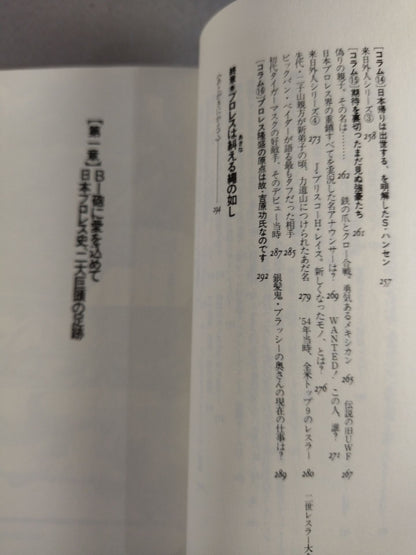 ［コラム⑭］日本帰りは出世する、を明解したS・ハンセン 257
来日外人シリーズ③ 258
［コラム⑮］期待を裏切ったまだ見ぬ強豪たち 261
偽りの親子。その名は…… 262 鉄の爪とクロー合戦。勇気あるメキシカン 265 伝説の旧UWF 267
日本プロレス界の重鎮すべてを実況した名アナウンサーは？ 269 WANTED！ この人、誰？ 271
来日外人シリーズ④ 273 J・ブリスコ―H・レイス。新しくなったモノ、とは？ 276
先代・二子山親方が新弟子の頃、力道山につけられたあだ名 279 '54年当時、全米トップ9のレスラー 280 二世レスラー大
ビッグバン・ベイダーが語る最もタフだった相手 285
初代タイガーマスクの好敵手、そのデビュー当時 287 銀髪鬼・ブラッシーの奥さんの現在の仕事は？ 289
［コラム⑯］プロレス隆盛の原点は故・吉原功氏なのです 292
終章 プロレスは糾える縄の如し
あざな
294
【第一章】B―砲に愛を込めて
日本プロレス史、二大巨頭の足跡